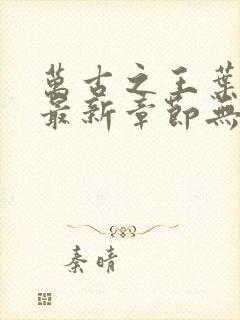 萬古之王葉
最新章節無
秦晴